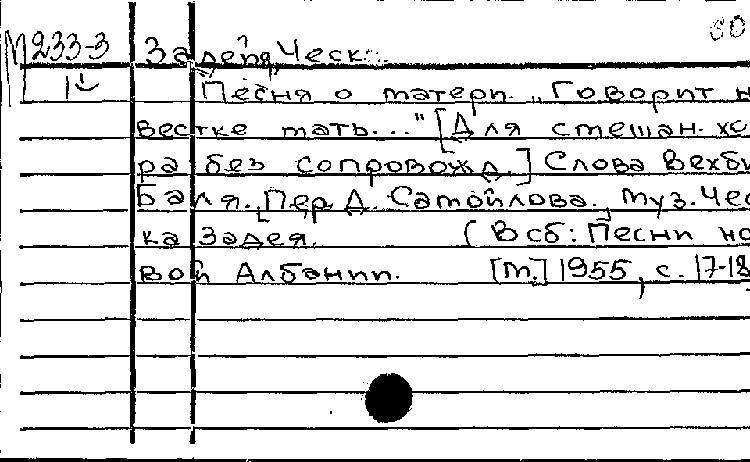 60
М233-3 Задея, Ческ
Песня о матери. „Говорит н
вестке мать..." [Для смешан. хо
ра без сопровожд.] Слова Вехби
Баля. [Пер. Д. Самойлова.] Муз. Чес
ка Задея. (В сб: Песни но
вой Албании. [М.] 1955, с. 17-18